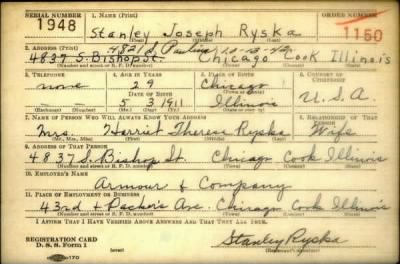 SERIAL NUMBER
1. NAME (Print)
ORDER NUMBER
1948
Stanley Joseph Ryska
1150
(First) (Middle) (Last)
4821 S. Paulina 10-13-42
2. ADDRESS (Print)
4837 S. Bishop St. Chicago Cook Illinois
(Number and street or R. F. D. number) (Town) (County) (State)
3. TELEPHONE
4. AGE IN YEARS
5. PLACE OF BIRTH
6. COUNTRY OF CITIZENSHIP
none
29
Chicago
(Town or county)
DATE OF BIRTH
5 3 1911
Illinois
U.S.A.
(Exchange) (No.)
(Mo.) (Day) (Yr.)
(State or country)
7. NAME OF PERSON WHO WILL ALWAYS KNOW YOUR ADDRESS
8. RELATIONSHIP OF THAT PERSON
Mrs. Harriet Theresa Ryska Wife
(Mr., Mrs., Miss) (First) (Middle) (Last)
9. ADDRESS OF THAT PERSON
4837 S. Bishop St. Chicago Cook Illinois
(Number and street or R. F. D. number) (Town) (County) (State)
10. EMPLOYER'S NAME
Armour & Company
11. PLACE OF EMPLOYMENT OR BUSINESS
43rd + Packers Ave. Chicago Cook Illinois
(Number and street or R. F. D. number) (Town) (County) (State)
I AFFIRM THAT I HAVE VERIFIED ABOVE ANSWERS AND THAT THEY ARE TRUE.
REGISTRATION CARD
D. S. S. Form 1
(over)
Stanley Ryska
(Registrant's signature)